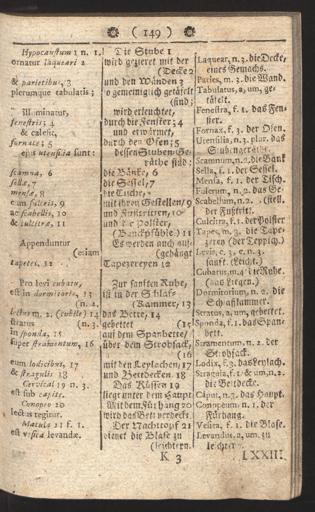 ( 149 )
Hypocaustum 1 n. 1.
ornatur laqueari 2
& parietibus, 3
plerumque tabulatis ;
Illuminatur,
fenestris; 4
& calefit,
furnace; 5
ejus utensilia sunt:
scamna, 6
sella, 7
mensæ, 8
cum fulcris, 9
ac scabellis, 10
& culcitra, 11
Appenduntur
(etiam
tapetes. 12
Pro levi cubatu,
est in dormitorio, 13
(n. 2.
lectus m. 2. (cubile) 14
stratus (n. 3.
in sponda, 15
super stramentum, 16
cum lodicibus, 17
& stragulis 18
Cervical 19 n. 3.
est sub capite.
Conopeo 20
lectus tegitur.
Matula 21 f. 1.
est vesicæ levandæ.
Die Stube 1
wird gezieret mit der
(Decke 2
und den Wänden 3
so gemeiniglich getäfelt
(sind;
wird erleuchtet,
durch die Fenster; 4
und erwärmet,
durch den Ofen; 5
dessen Stuben-Ge-
räthe sind:
die Bänke, 6
die Sessel, 7
die Tische, 8
mit ihren Gestellen, 9
und Fußtritten, 10
und die Polster,
(Bankpfühle) 11
Es werden auch auf-
(gehängt
Tapezereyen 12
Zur sanften Ruhe,
ist in der Schlaf-
(Kammer, 13
das Bette, 14
gebettet (15
auf dem Spanbette/
über dem Strohsack,
(16
mit den Leylachen, 17
und Bettdecken. 18
Das Küssen 19
liegt unter dem Haupt.
Mit dem Fürhang 20
wird das Bett verdeckt.
Der Nachttopf 21
dienet die Blase zu
(leichtern.
K 3
Laquear, n. 3. die Decke,
eines Gemachs.
Paries, m. 3. die Wand.
Tabulatus, a, um, ge-
täfelt.
Fenestra, f. 1. das Fen-
ster.
Fornax, f. 3. der Ofen.
Utensilia, n. 3. plur. das
Stubengeräthe.
Scamnum, n. 2. die Bank
Sella, f. 1. der Sessel.
Mensa, f. 1. der Tisch.
Fulcrum, n. 2. das Ge-
Scabellum, n. 2. (stell.
der Fußtritt.
Culcitra, f. 1. der Polster
Tapes, m. 3. die Tape-
zerey (der Teppich.)
Levis, e, 3. c. n. 3.
sanft. (Leicht.)
Cubatus, m. 4. die Ruhe.
(das Liegen.)
Dormitorium, n. 2. die
Schlafkammer.
Stratus, a, um, gebettet.
Sponda, f. 1. das Span-
bett.
Stramentum, n. 2. der
Strohsack.
Lodix, f. 3. das Leylach.
Stragula, f. 1. & um, n. 2.
die Bettdecke.
Caput, n. 3. das Haupt.
Conopeum, n. 2. der
Fürhang.
Vesica, f. 1. die Blase.
Levandus, a, um, zu
leichtern.
LXXIII.